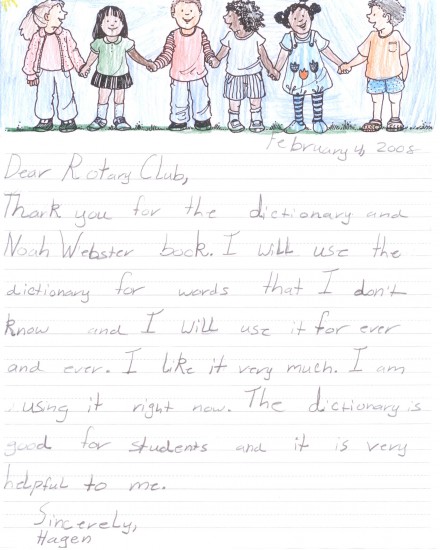 February 4, 2008
Dear Rotary Club,
Thank you for the dictionary and
Noah Webster book. I will use the
dictionary for words that I don't
know and I will use it for ever
and ever. I like it very much. I am
using it right now. The dictionary is
good for students and it is very
helpful to me.
Sincerely,
Hagen